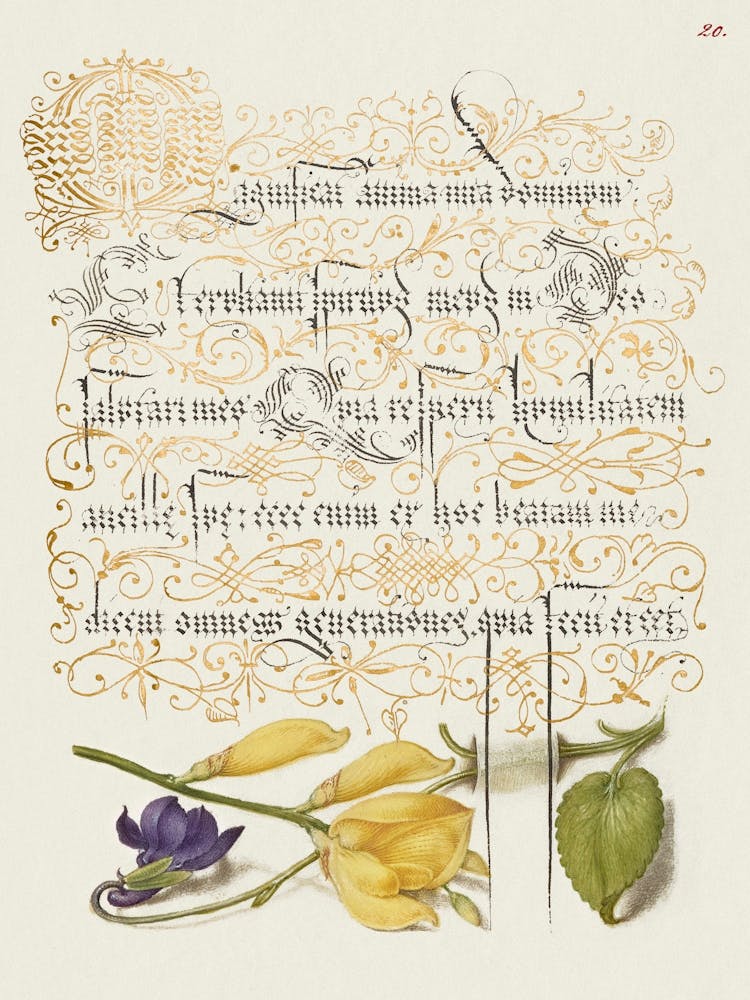 20.
Magnificat anima mea dominum
Et exultauit spiritus meus in Deo
salutari meo Quia respexit humilitatem
ancillę suę: ecce enim ex hoc beatam me
dicent omnes generationes, quia fecit